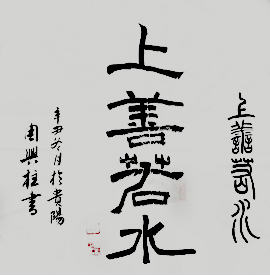 上善若水
上善若水
辛丑冬月於貴陽
周興柱書